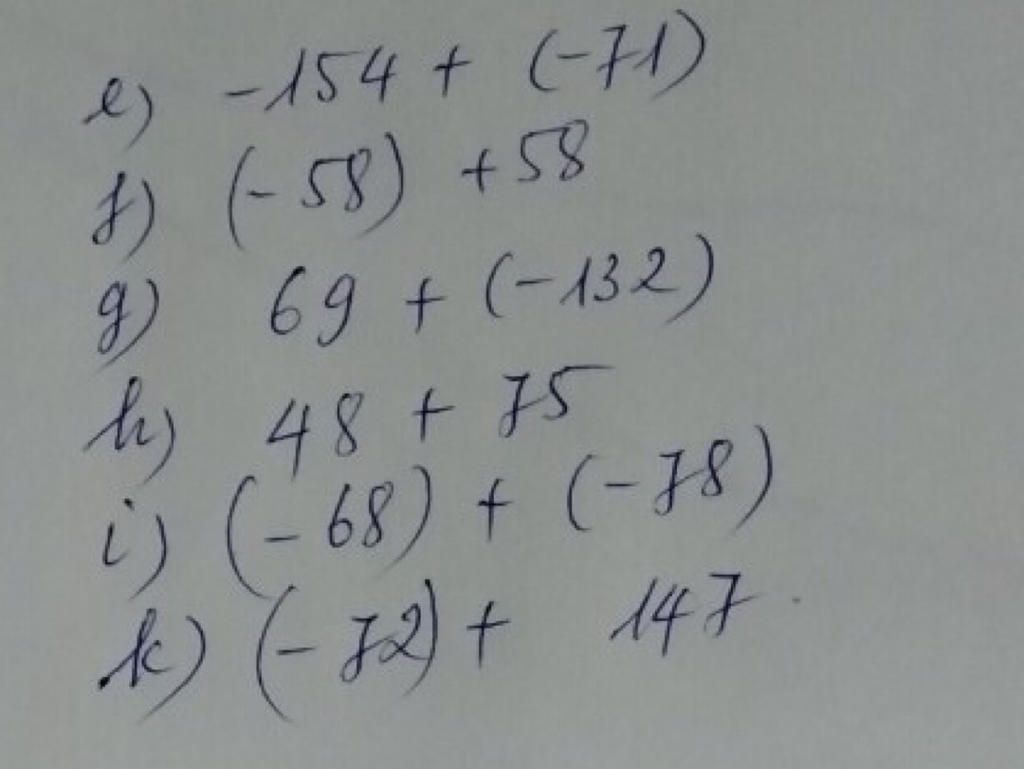 e) -154 + (-71)
f) (-58) +58
g) 69 + (-132)
h) 48 + 75
i) (-68) + (-78)
k) (-72) + 147